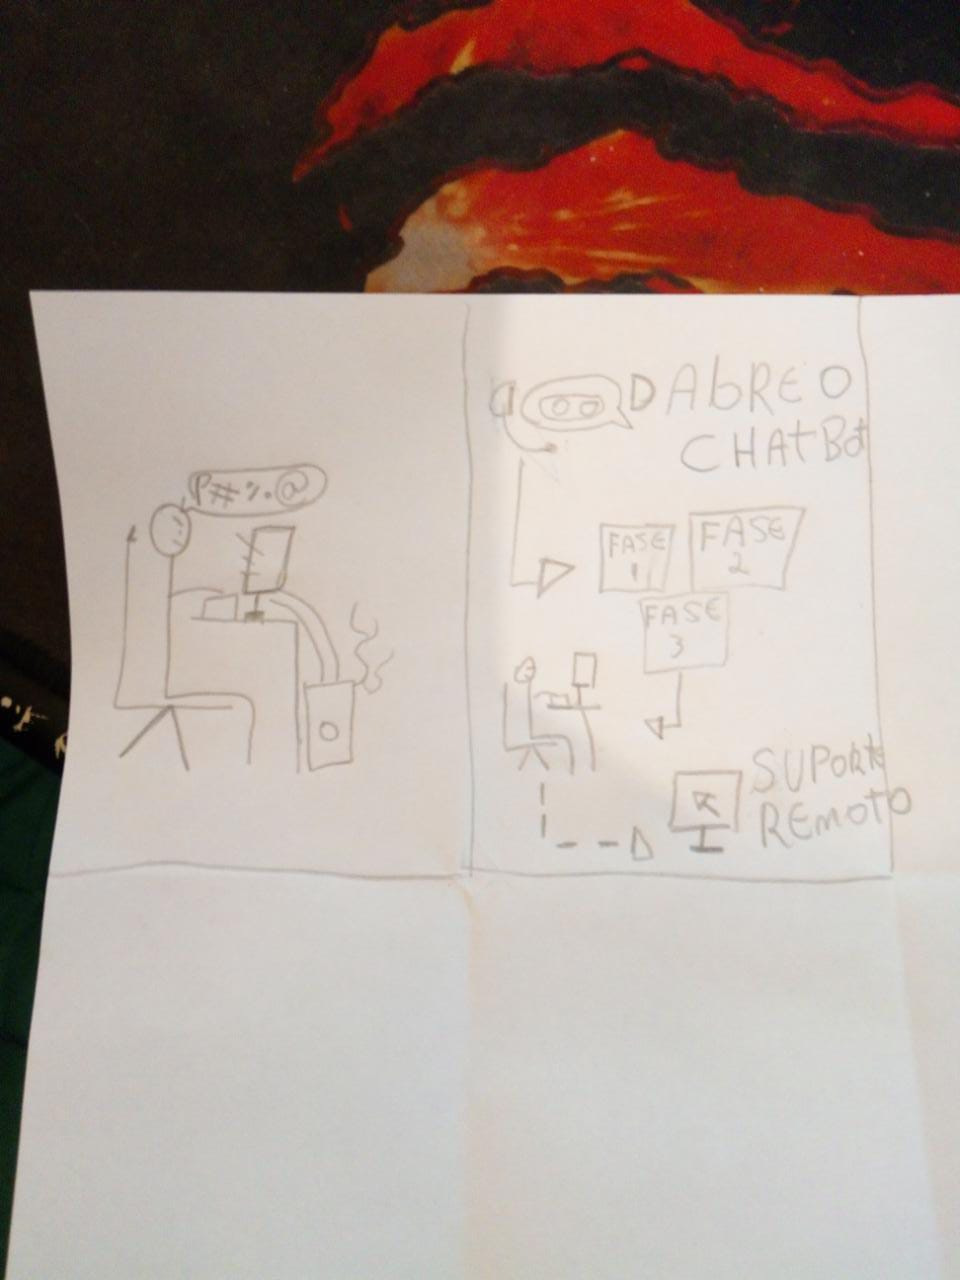 P#%.@
ABRE O
CHATBOT
FASE
1
FASE
2
FASE
3
SUPORTE
REMOTO